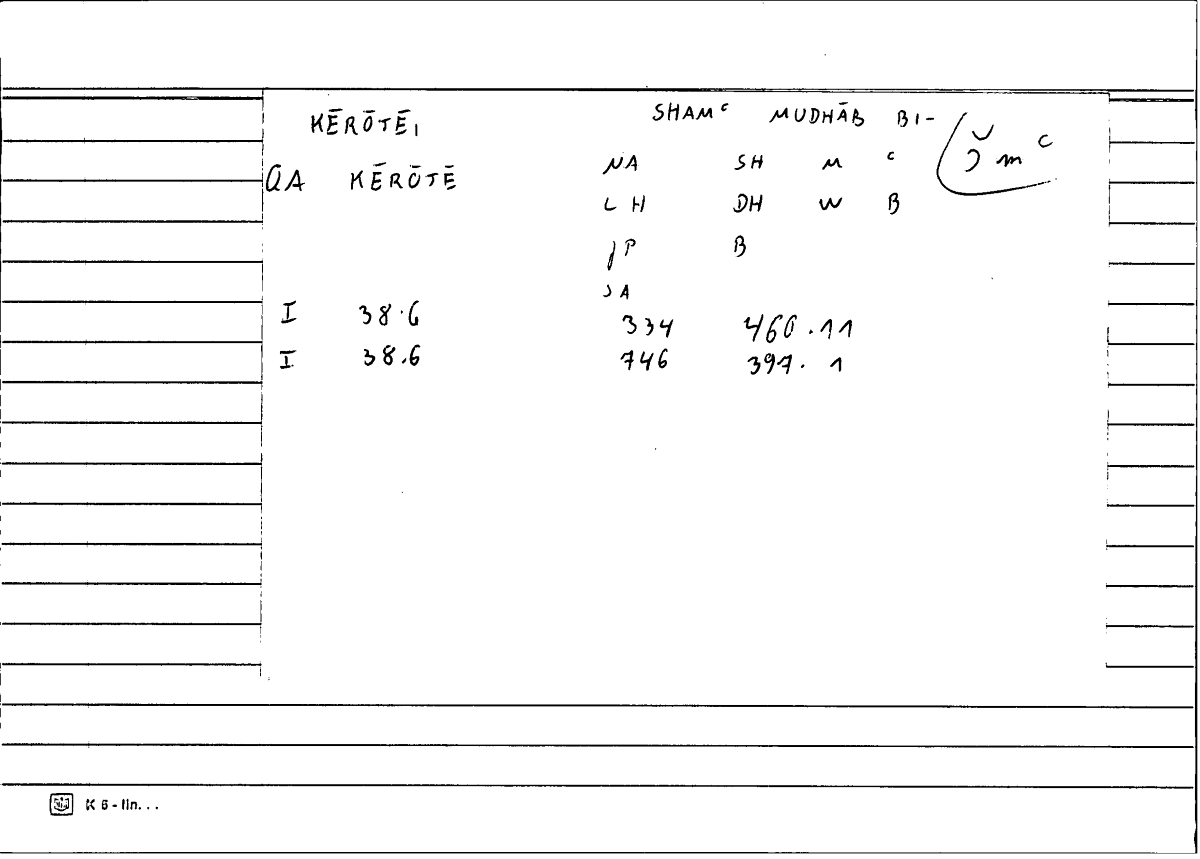 KĒRŌTĒI SHAMᶜ MUDHĀB BI-
QA KĒRŌTĒ NA SH M ᶜ
LH DH W B
P B
SA
I 38.6 334 460.11
I 38.6 746 397.1
K 6 - lin...